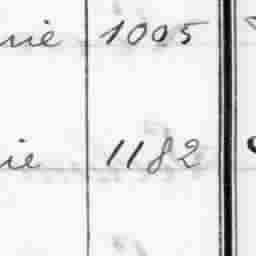 nie 1005
ie 1182